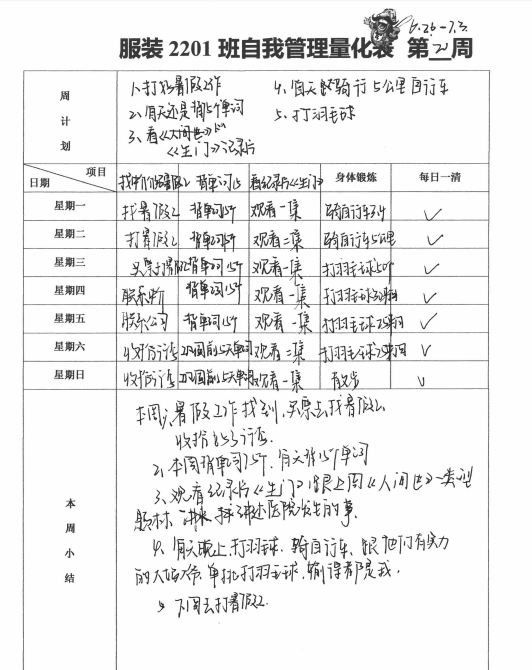 6.26-7.3.
服装 2201 班自我管理量化表 第 21 周
周计划
1、打好暑假工作
2、每天还是背15个单词
3、看《人间世》
《生门》记录片
4、每天骑行5公里自行车
5、打羽毛球
项目
日期
找中介暑假工 背单词15 看纪录片《生门》 身体锻炼 每日一清
星期一 找暑假工 背单词15个 观看一集 ✓
星期二 打暑假工 背单词15个 观看二集 骑自行车5公里 ✓
星期三 买票 背单词15个 观看一集 打羽毛球 ✓
星期四 联系中介 背单词15个 观看一集 打羽毛球 ✓
星期五 联系公司 背单词15个 观看一集 打羽毛球 ✓
星期六 收拾行李 单词 观看二集 打羽毛球 ✓
星期日 收拾行李 单词 观看一集 散步 ✓
本周小结
本周1、暑假工作找到,买票去找暑假工
收拾行李。
2、本周背单词15个,每天背15个单词
3、观看纪录片《生门》跟上周《人间世》一类型
讲述医院发生的事。
4、每天晚上打羽毛球、骑自行车、跟他们有实力
的 单挑打羽毛球,输得都是我。
5、下周去打暑假工.